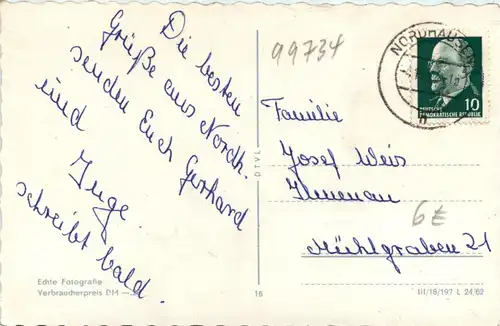 Die besten
Grüße aus Nordh.
senden Euch Gerhard
und Inge
schreibt bald.
Echte Fotografie
Verbraucherpreis DM
DTVL
16
99734
NORDHAUSEN
10
DEUTSCHE
DEMOKRATISCHE REPUBLIK
Familie
Josef Weis
Ilmenau
6€
Mühlgraben 21
III/18/197 L 24/62